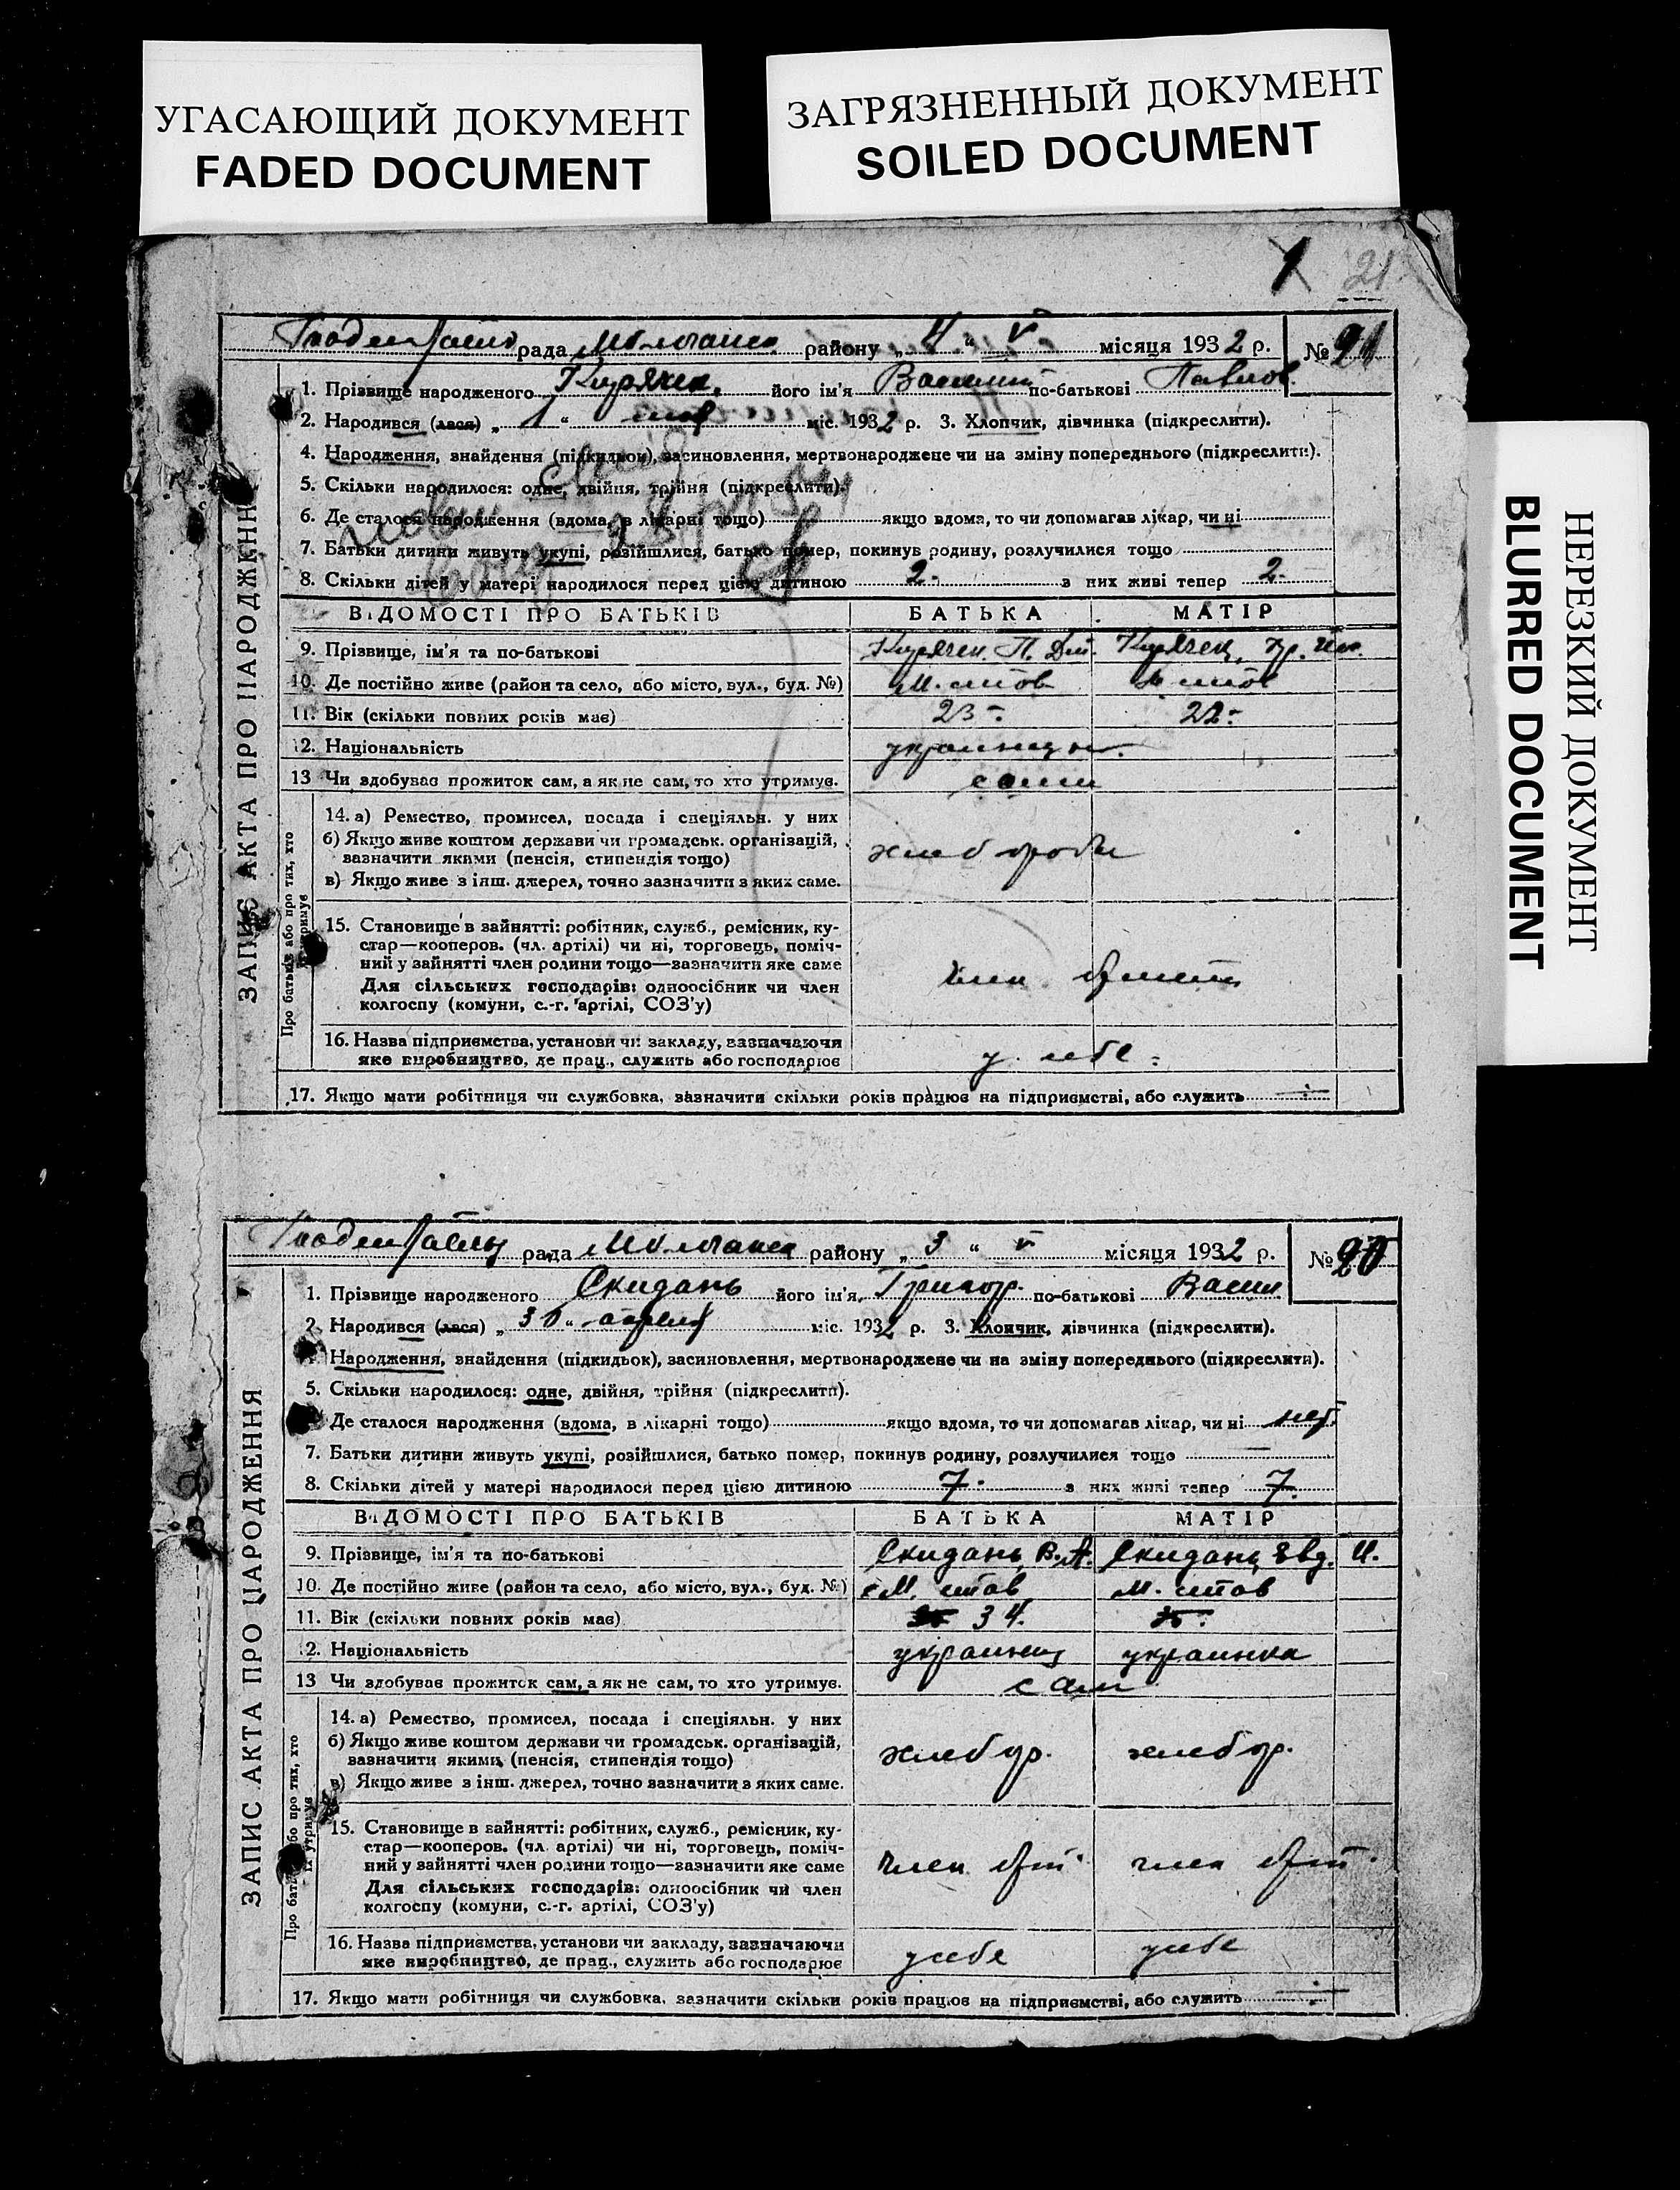 УГАСАЮЩИЙ ДОКУМЕНТ
FADED DOCUMENT
ЗАГРЯЗНЕННЫЙ ДОКУМЕНТ
SOILED DOCUMENT
НЕРЕЗКИЙ ДОКУМЕНТ
BLURRED DOCUMENT
21
ЗАПИС АКТА ПРО НАРОДЖЕННЯ
рада района „4“ V місяця 1932 р. № 21
1. Прізвище народженого його ім'я Василий по-батькові Павлов.
2. Народився (лася) „1“ мая міс. 1932 р. 3. Хлопчик, дівчинка (підкреслити).
4. Народження, знайдення (підкидьок), засиновлення, мертвонароджене чи на зміну попереднього (підкреслити).
5. Скільки народилося: одне, двійня, трійня (підкреслити).
6. Де сталося народження (вдома, в лікарні тощо) якщо вдома, то чи допомагав лікар, чи ні
7. Батьки дитини живуть укупі, розійшлися, батько помер, покинув родину, розлучилися тощо
8. Скільки дітей у матері народилося перед цією дитиною 2. з них живі тепер 2.
ВІДОМОСТІ ПРО БАТЬКІВ БАТЬКА МАТІР
9. Прізвище, ім'я та по-батькові
10. Де постійно живе (район та село, або місто, вул., буд. №)
11. Вік (скільки повних років має) 23 22
12. Національність украинцы
13 Чи здобував прожиток сам, а як не сам, то хто утримув. сами
Про батьків або про тих, хто їх утримує
14. а) Ремество, промисел, посада і спеціяльн. у них
б) Якщо живе коштом держави чи громадськ. організацій, зазначити якими (пенсія, стипендія тощо)
в) Якщо живе з інш. джерел, точно зазначити з яких саме.
хлеборобы
15. Становище в зайнятті: робітник, служб., ремісник, ку-
стар—кооперов. (чл. артілі) чи ні, торговець, поміч-
ний у зайнятті член родини тощо—зазначити яке саме
Для сільських господарів: одноосібник чи член
колгоспу (комуни, с.-г. артілі, СОЗ'у)
член артели
16. Назва підприємства, установи чи закладу, зазначаючи
яке виробництво, де прац., служить або господарює
у себе
17. Якщо мати робітниця чи службовка, зазначити скільки років працює на підприємстві, або служить
ЗАПИС АКТА ПРО НАРОДЖЕННЯ
рада району „3“ V місяця 1932 р. № 20
1. Прізвище народженого Скидань його ім'я Григор. по-батькові Васил
2. Народився (лася) „30“ апреля міс. 1932 р. 3. Хлопчик, дівчинка (підкреслити).
Народження, знайдення (підкидьок), засиновлення, мертвонароджене чи на зміну попереднього (підкреслити).
5. Скільки народилося: одне, двійня, трійня (підкреслити).
Де сталося народження (вдома, в лікарні тощо) якщо вдома, то чи допомагав лікар, чи ні нет
7. Батьки дитини живуть укупі, розійшлися, батько помер, покинув родину, розлучилися тощо
8. Скільки дітей у матері народилося перед цією дитиною 7. з них живі тепер 7.
ВІДОМОСТІ ПРО БАТЬКІВ БАТЬКА МАТІР
9. Прізвище, ім'я та по-батькові Скидань В. А. Скидань Евд. И.
10. Де постійно живе (район та село, або місто, вул., буд. №)
11. Вік (скільки повних років має) 34.
12. Національність украинец украинка
13 Чи здобував прожиток сам, а як не сам, то хто утримув. сам
Про батьків або про тих, хто їх утримує
14. а) Ремество, промисел, посада і спеціяльн. у них
б) Якщо живе коштом держави чи громадськ. організацій,
зазначити якими (пенсія, стипендія тощо)
в) Якщо живе з інш. джерел, точно зазначити з яких саме.
хлебор. хлебор.
15. Становище в зайнятті: робітник, служб., ремісник, ку-
стар—кооперов. (чл. артілі) чи ні, торговець, поміч-
ний у зайнятті член родини тощо—зазначити яке саме
Для сільських господарів: одноосібник чи член
колгоспу (комуни, с.-г. артілі, СОЗ'у)
член арт. член арт.
16. Назва підприємства, установи чи закладу, зазначаючи
яке виробництво, де прац., служить або господарює
у себе у себе
17. Якщо мати робітниця чи службовка, зазначити скільки років працює на підприємстві, або служить